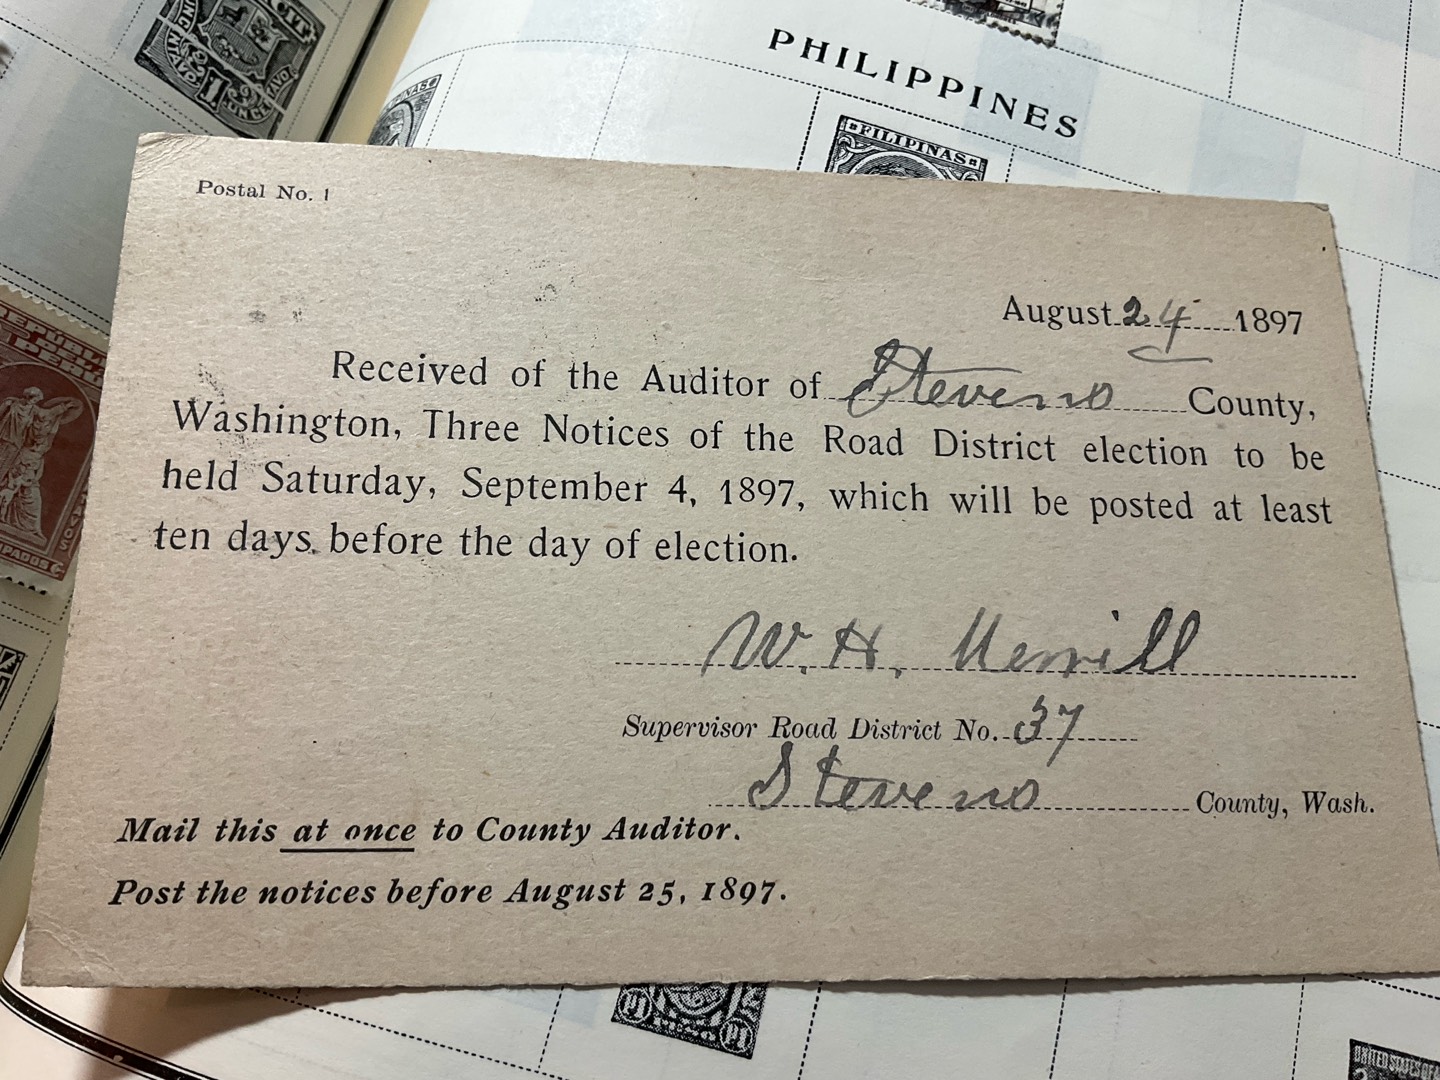 PHILIPPINES
FILIPINAS
Postal No. 1
August 24 1897
Received of the Auditor of Stevens County,
Washington, Three Notices of the Road District election to be
held Saturday, September 4, 1897, which will be posted at least
ten days before the day of election.
W. H. Merrill
Supervisor Road District No. 37
Stevens County, Wash.
Mail this at once to County Auditor.
Post the notices before August 25, 1897.
PESO